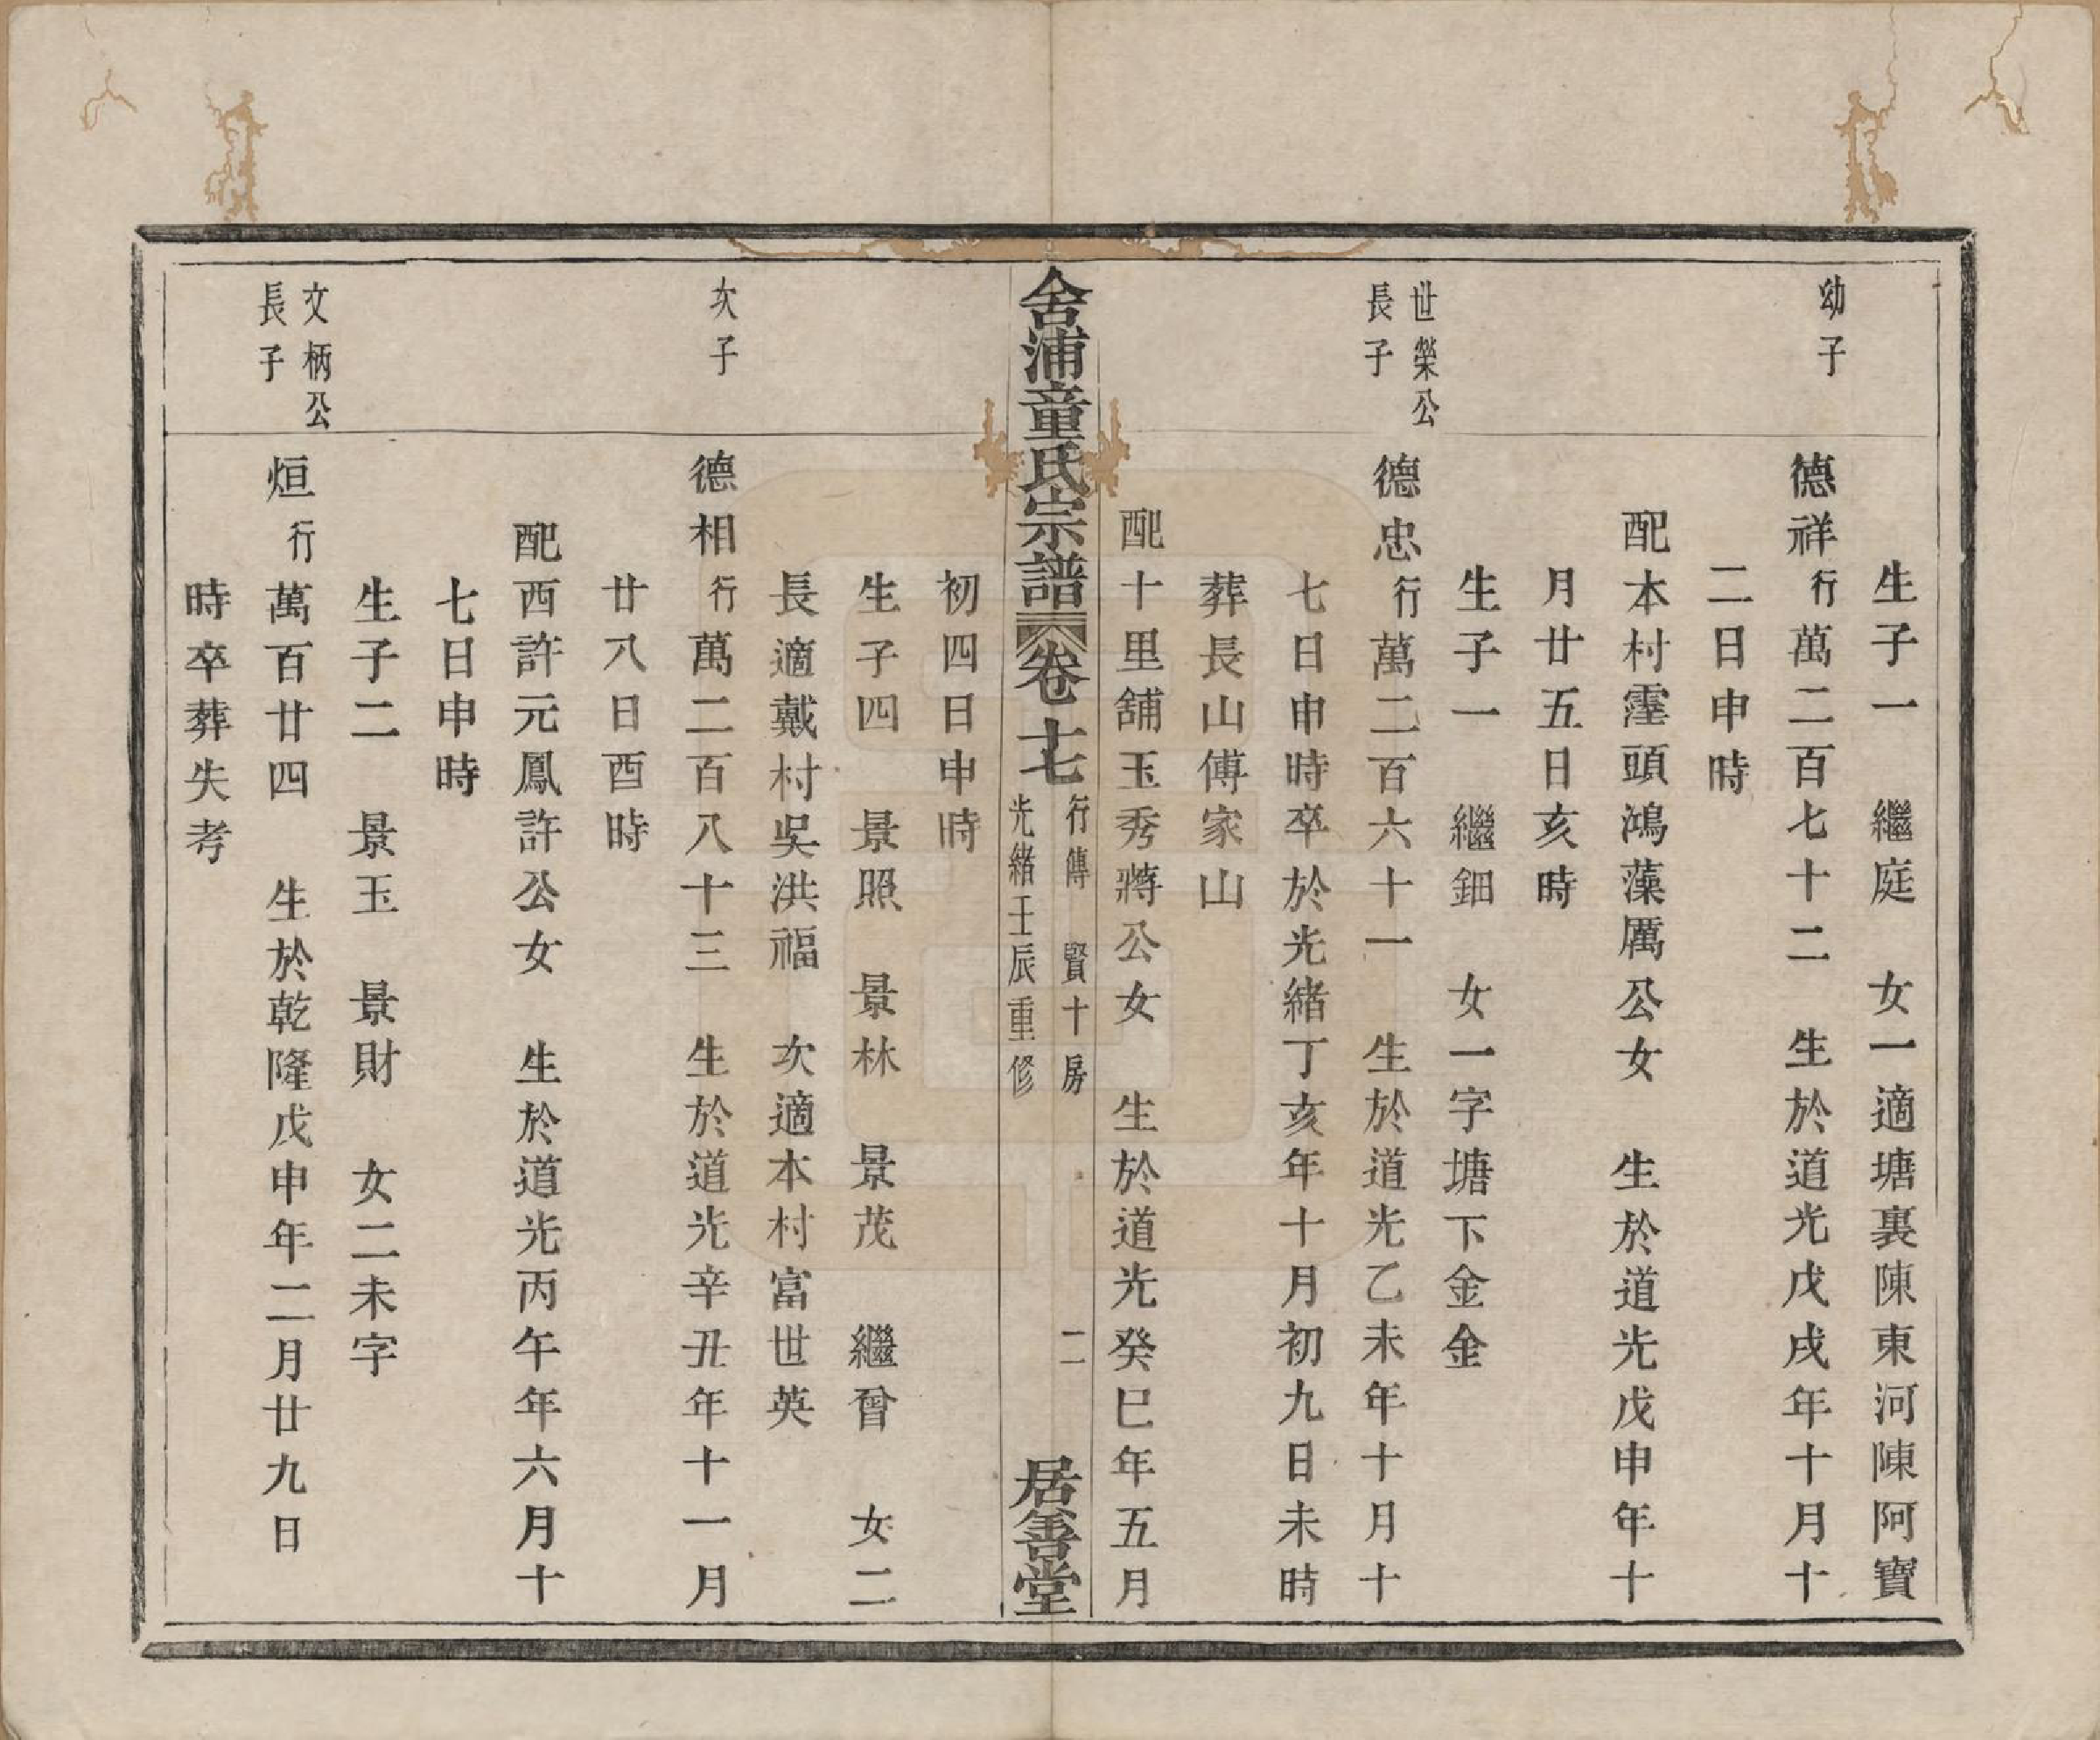 生子一　繼庭　女一適塘裏陳東河陳阿寶
幼子
德祥行萬二百七十二　生於道光戊戌年十月十
二日申時
配本村霪頭鴻藻厲公女　生於道光戊申年十
月廿五日亥時
生子一　繼鈿　女一字塘下金金
世榮公
長子
德忠行萬二百六十一　生於道光乙未年十月十
七日申時卒於光緒丁亥年十月初九日未時
葬長山傅家山
配十里舖玉秀蔣公女　生於道光癸巳年五月
舍浦童氏宗譜　卷十七
行傳　賢十房　二
光緒壬辰重修
居善堂
初四日申時
生子四　景照　景林　景茂　繼曾　女二
長適戴村吳洪福　次適本村富世英
次子
德相行萬二百八十三　生於道光辛丑年十一月
廿八日酉時
配西許元鳳許公女　生於道光丙午年六月十
七日申時
生子二　景玉　景財　女二未字
文柄公
長子
烜行萬百廿四　生於乾隆戊申年二月廿九日
時卒葬失考